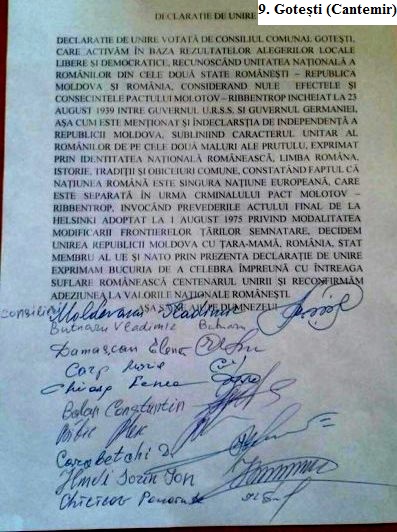 DECLARATIE DE UNIRE
9. Gotești (Cantemir)
DECLARAȚIE DE UNIRE VOTATĂ DE CONSILIUL COMUNAL GOTEȘTI,
CARE ACTIVĂM ÎN BAZA REZULTATELOR ALEGERILOR LOCALE
LIBERE ȘI DEMOCRATICE, RECUNOSCÂND UNITATEA NAȚIONALĂ A
ROMÂNILOR DIN CELE DOUĂ STATE ROMÂNEȘTI – REPUBLICA
MOLDOVA ȘI ROMÂNIA, CONSIDERAND NULE EFECTELE ȘI
CONSECINTELE PACTULUI MOLOTOV – RIBBENTROP INCHEIAT LA 23
AUGUST 1939 INTRE GUVERNUL U.R.S.S. SI GUVERNUL GERMANIEI,
AȘA CUM ESTE MENȚIONAT ȘI ÎNDECLARSȚIA DE INDEPENDENȚĂ A
REPUBLICII MOLDOVA, SUBLINIIND CARACTERUL UNITAR AL
ROMÂNILOR DE PE CELE DOUĂ MALURI ALE PRUTULUI, EXPRIMAT
PRIN IDENTITATEA NAȚIONALĂ ROMÂNEASCĂ, LIMBA ROMÂNA,
ISTORIE, TRADIȚII ȘI OBICEIURI COMUNE, CONSTATÂND FAPTUL CĂ
NAȚIUNEA ROMÂNĂ ESTE SINGURA NAȚIUNE EUROPEANĂ, CARE
ESTE SEPARATĂ ÎN URMA CRMINALULUI PACT MOLOTOV –
RIBBENTROP, INVOCÂND PREVEDERILE ACTULUI FINAL DE LA
HELSINKI ADOPTAT LA 1 AUGUST 1975 PRIVIND MODALITATEA
MODIFICARII FRONTIERELOR ȚĂRILOR SEMNATARE, DECIDEM
UNIREA REPUBLICII MOLDOVA CU ȚARA-MAMĂ, ROMÂNIA, STAT
MEMBRU AL UE ȘI NATO PRIN PREZENTA DECLARAȚIE DE UNIRE
EXPRIMAM BUCURIA DE A CELEBRA ÎMPREUNĂ CU ÎNTREAGA
SUFLARE ROMÂNEASCĂ CENTENARUL UNIRII ȘI RECONFIRMĂM
ADEZIUNEA LA VALORILE NAȚIONALE ROMÂNEȘTI.
DUMNEZEU
Moldovanu Vladimir
Butnaru Vladimir Butnaru
Damașcan Elena
Carp Maria
Balan Constantin
Carabetchi
Sorin Ion